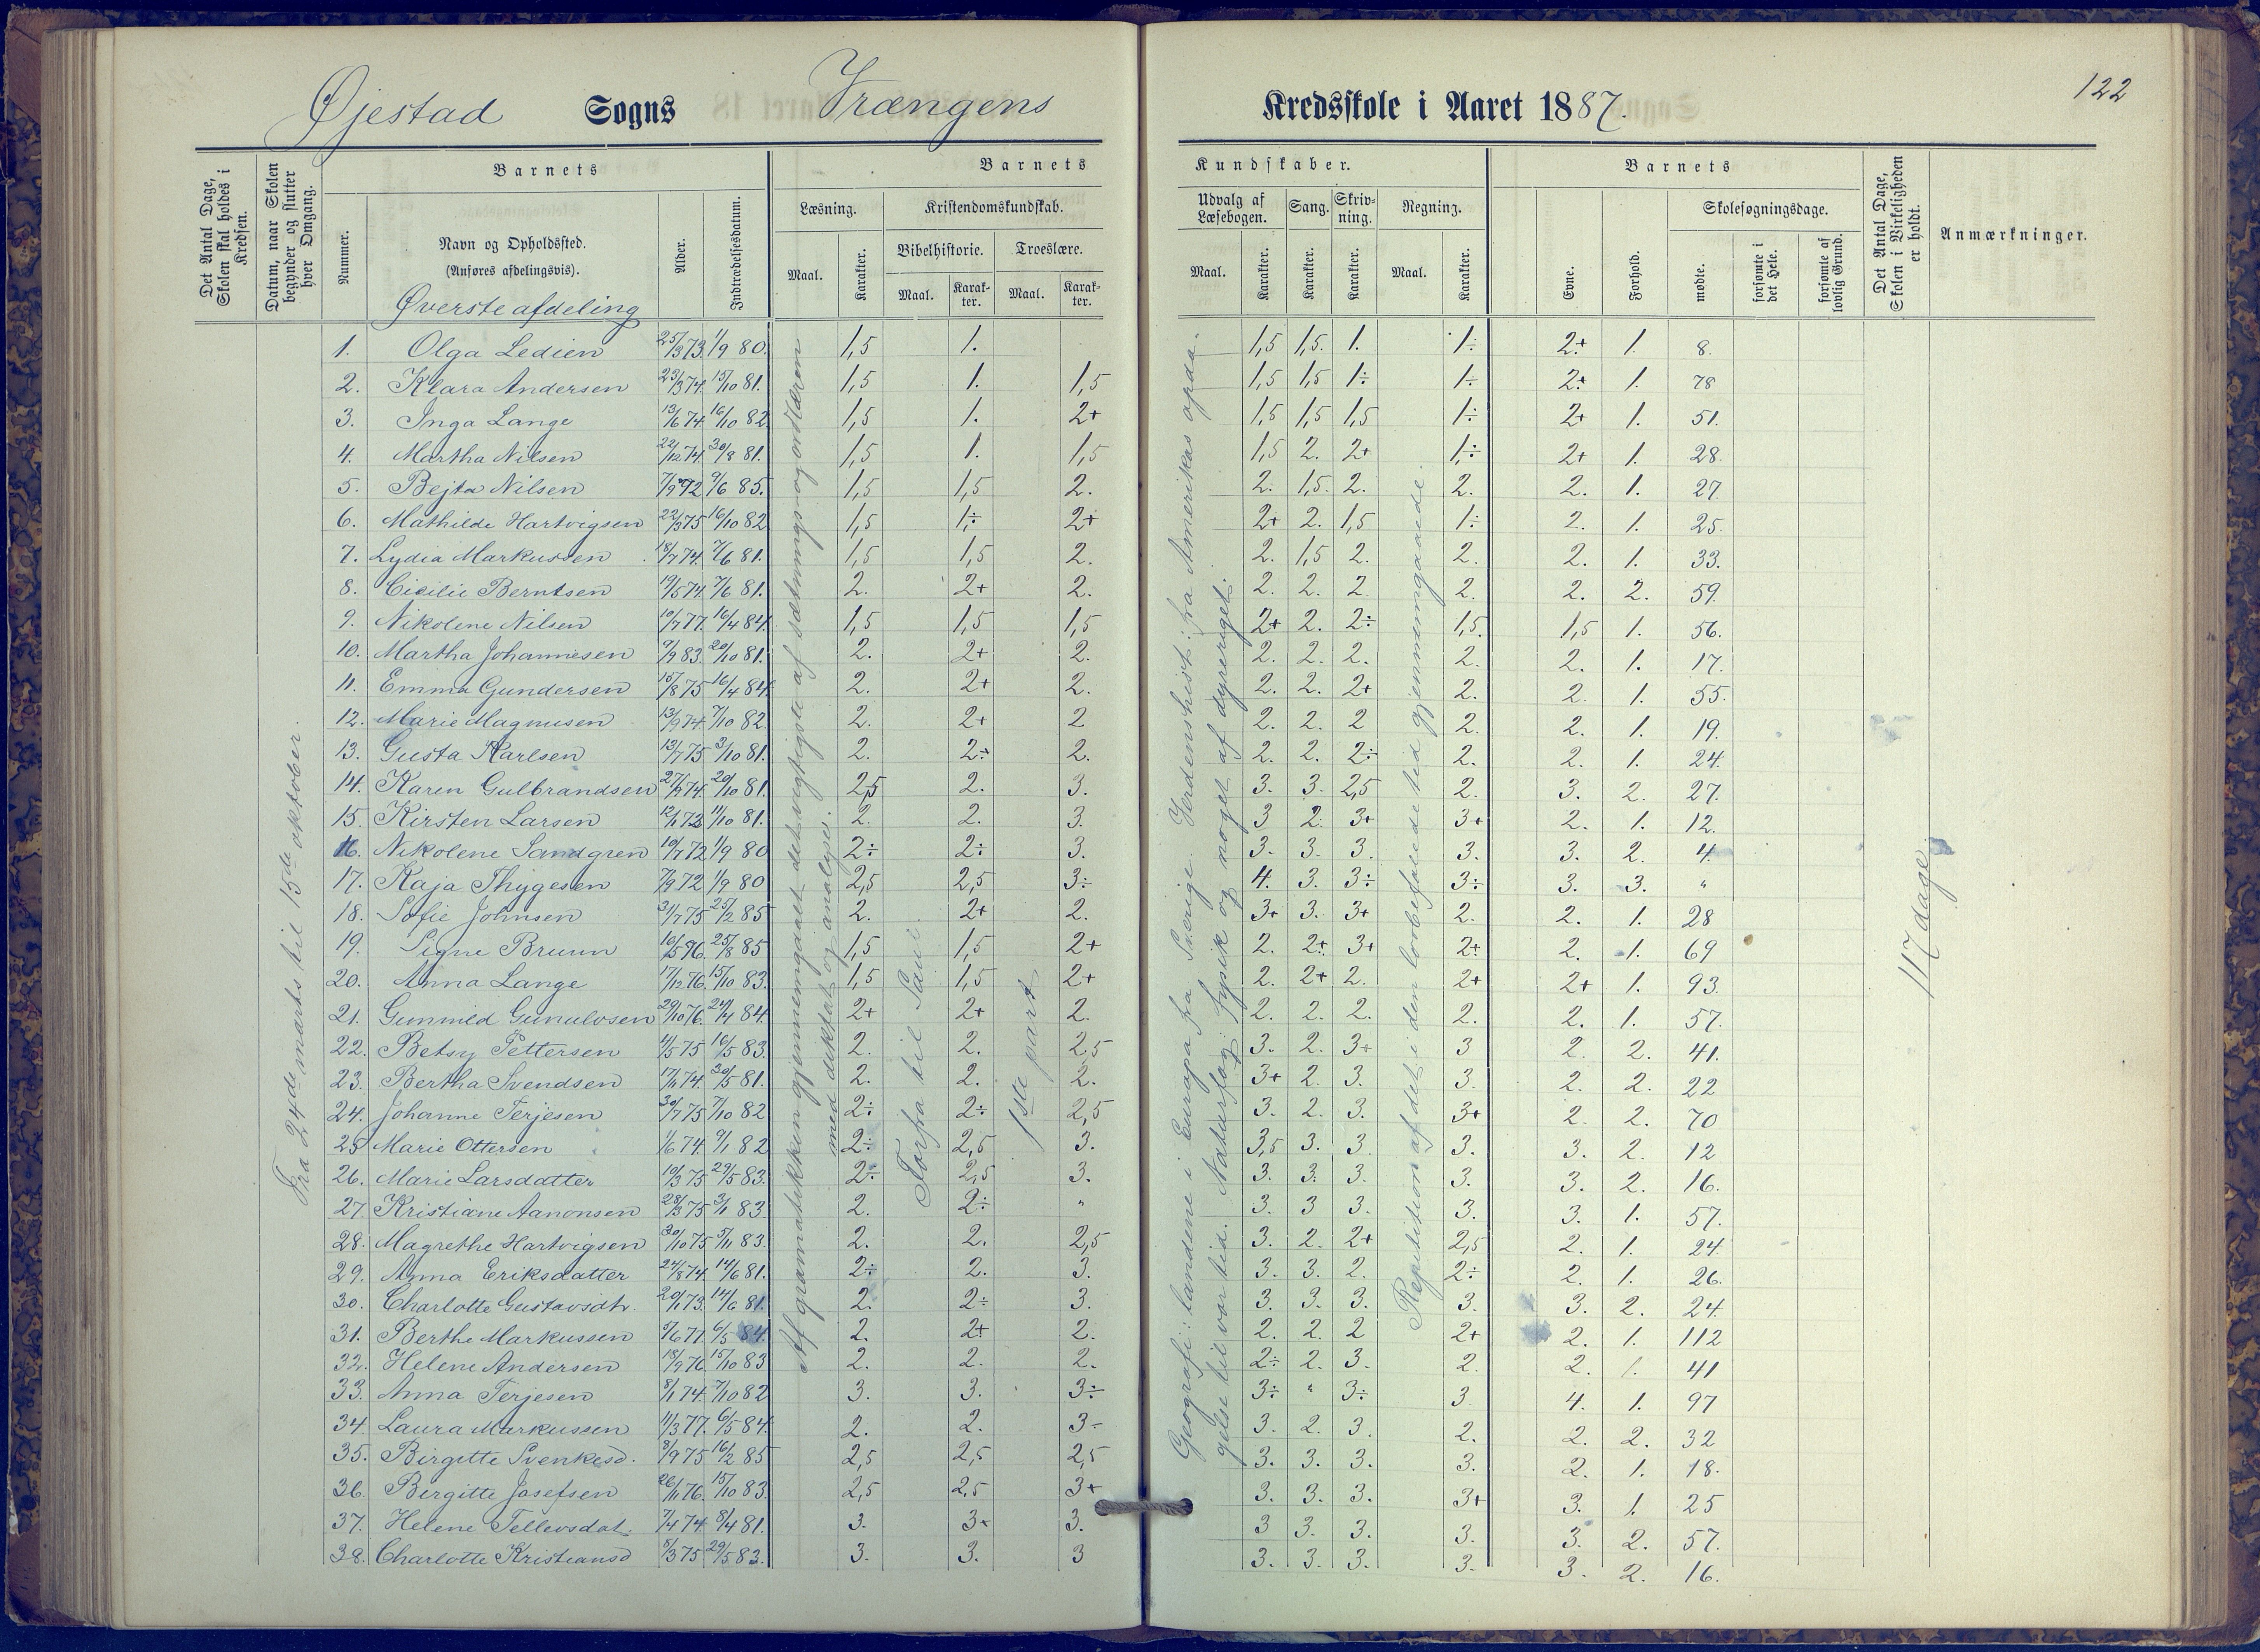 122
Øjestad Sogns Vrængens Kredsskole i Aaret 1887.
Det Antal Dage, Skolen skal holdes i Kredsen.
Datum, naar Skolen begynder og slutter hver Omgang.
Barnets
Nummer.
Navn og Opholdssted.
(Anføres afdelingsvis).
Øverste afdeling
Alder.
Indtrædelsesdatum.
Barnets Kundskaber.
Læsning.
Maal. Karakter.
Kristendomskundskab.
Bibelhistorie. Troeslære.
Maal. Karakter. Maal. Karakter.
Udvalg af Læsebogen.
Maal. Karakter.
Sang. Karakter.
Skrivning. Karakter.
Regning.
Maal. Karakter.
Barnets
Evne. Forhold.
Skolesøgningsdage.
mødte. forsømte i det Hele. forsømte af lovlig Grund.
Det Antal Dage, Skolen i Virkeligheden er holdt.
Anmærkninger.
Fra 24de marts til 15de oktober.
Af gramatikken gjennemgaaet det vigtigste af sætnings og ordlæren
med diktat og analyse.
Forfra til Saul.
1ste part
Geografi: landene i Europa fra Sverige. Verdenshist: fra Amerikas opda-
gelse til vor tid. Naturfag: fysik og noget af dyreriget.
Repetition af det i den lovbefalede tid gjennemgaaede.
117 dage
1. Olga Ledien 25/3 73. 1/9 80. 1,5 1. 1,5 1,5. 1. 1÷ 2+ 1. 8.
2. Klara Andersen 23/3 74. 15/10 81. 1,5 1. 1,5 1,5 1,5 1÷ 1÷ 2+ 1. 78
3. Inga Lange 13/6 74. 16/10 82. 1,5 1. 2+ 1,5 1,5 1,5 1÷ 2+ 1. 51.
4. Martha Nilsen 22/12 74. 30/8 81. 1,5 1. 1,5 1,5 2. 2+ 1÷ 2+ 1. 28.
5. Bejta Nilsen 7/9 72 9/6 85. 1,5 1,5 2. 2. 1,5. 2. 2. 2. 1. 27
6. Mathilde Hartvigsen 22/3 75 16/10 82 1,5 1÷ 2+ 2+ 2. 1,5 1÷ 2. 1. 25.
7. Lydia Markussen 18/7 74. 7/6 81. 1,5 1,5 2. 2. 1,5 2. 2. 2. 1. 33.
8. Cicilie Berntsen 19/5 74 7/6 81. 2. 2+ 2. 2. 2. 2. 2. 2. 2. 59.
9. Nikolene Nilsen 10/7 77. 16/4 84. 1,5 1,5 1,5 2+ 2. 2÷ 1,5. 1,5 1. 56.
10. Martha Johannesen 9/9 83. 20/10 81. 2. 2+ 2. 2. 2. 2. 2. 2. 1. 17.
11. Emma Gundersen 15/8 75 16/4 84. 2. 2+ 2. 2. 2. 2+ 2. 2. 1. 55.
12. Marie Magnusen 13/9 74. 7/10 82. 2. 2+ 2 2. 2. 2 2. 2. 1. 19.
13. Gusta Karlsen 13/7 75 3/10 81. 2. 2÷ 2. 2. 2. 2÷ 2. 2. 1. 24.
14. Karen Gulbrandsen 27/9 74. 20/10 81. 2,5 2. 3. 3. 3. 2,5 2. 3. 2. 27.
15. Kirsten Larsen 12/1 73 11/10 81. 2. 2. 3. 3 2. 3+ 3+ 2. 1. 12.
16. Nikolene Sandgren 10/7 72 1/9 80 2÷ 2÷ 3. 3. 3. 3. 3. 3. 2. 4.
17. Kaja Thygesen 7/9 72 1/9 80 2,5 2,5 3÷ 4. 3. 3÷ 3÷ 3. 3. "
18. Sofie Johnsen 31/7 75 25/2 85 2. 2+ 2. 3+ 3. 3+ 2. 2. 1. 28
19. Signe Bruun 16/5 76. 25/8 85 1,5 1,5 2+ 2. 2+ 3+ 2+ 2. 1. 69
20. Anna Lange 17/12 76. 15/10 83. 1,5 1,5 2+ 2. 2+ 2. 2+ 2+ 1. 93.
21. Gunnild Gunulvsen 29/10 76. 24/4 84. 2+ 2+ 2. 2. 2. 2. 2. 2. 1. 57.
22. Betsy Pettersen 4/5 75 16/5 83. 2. 2. 2,5 3. 2. 3+ 3 2. 2. 41.
23. Bertha Svendsen 17/1 74. 30/5 81. 2. 2. 2. 3+ 2. 3. 3. 2. 2. 22
24. Johanne Terjesen 30/7 75 7/10 82 2÷ 2÷ 2,5 3. 2. 3. 3+ 2. 2. 70
25 Marie Ottersen 1/6 74. 9/1 82 2÷ 2,5 3. 3,5 3. 3. 3. 3. 2. 12
26. Marie Larsdatter 10/3 75 29/5 83. 2÷ 2,5 3. 3. 3. 3. 3. 3. 2. 16.
27. Kristiane Aanonsen 28/3 75 3/1 83. 2. 2÷ " 3. 3 3. 3. 3. 1. 57.
28. Magrethe Hartvigsen 30/10 75 5/11 83. 2. 2. 2,5 3. 2. 2+ 2,5 2. 1. 24
29. Anna Eriksdatter 24/8 74. 14/6 81. 2÷ 2. 3. 3. 3. 2. 2÷ 2. 1. 26.
30. Charlotte Gustavsdtr. 20/1 73. 14/6 81 2. 2÷ 3. 3. 3. 3. 3. 3. 2. 24.
31. Berthe Markussen 5/6 77. 6/5 84. 2. 2+ 2. 2. 2. 2 2+ 2. 1. 112
32. Helene Andersen 18/9 76. 15/10 83 2. 2. 2. 2÷ 2. 3. 2. 2. 1. 41
33. Anna Terjesen 8/1 74. 7/10 82 3. 3. 3÷ 3÷ " 3÷ 3 4. 1. 97
34. Laura Markussen 11/3 77. 6/5 84. 2. 2. 3÷ 3. 2. 3. 2. 2. 2. 32
35. Birgitte Svenkesd. 8/9 75 16/2 85 2,5 2,5 2,5 3. 3. 3. 3. 2. 1. 18.
36. Birgitte Josefsen 26/1 76. 15/10 83. 2,5 2,5 3+ 3. 3. 3. 3+ 3. 1. 25
37. Helene Tellevsdat. 7/4 74. 8/4 81. 3. 3+ 3. 3 3. 3. 3. 3. 2. 57.
38. Charlotte Kristiansd 5/3 75 29/5 83. 3. 3. 3 3. 3. 3. 3. 3. 2. 16.